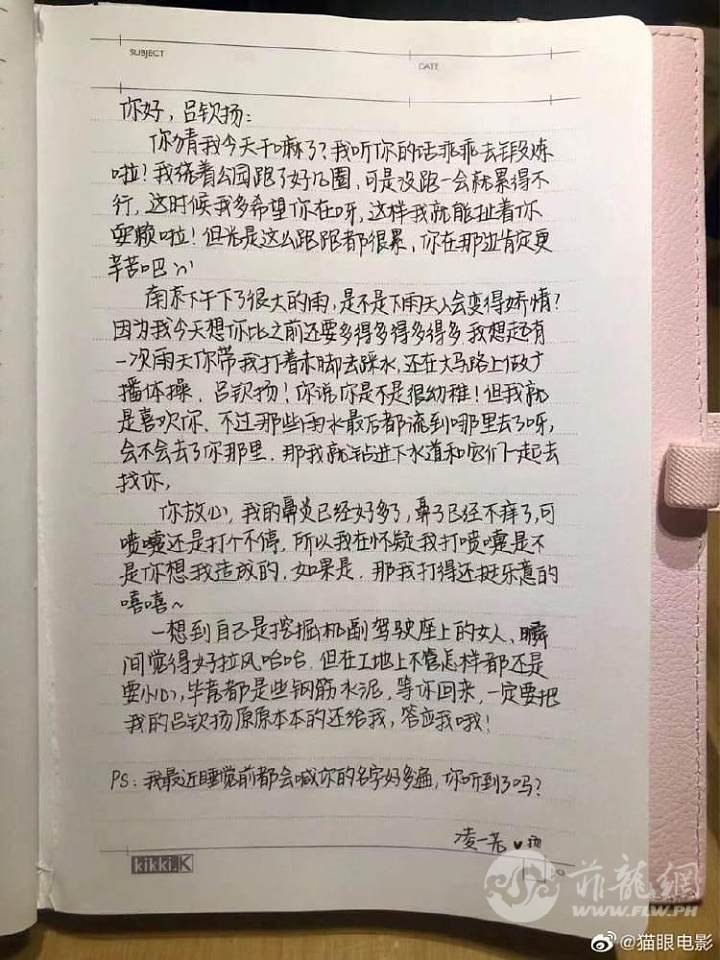 SUBJECT
DATE
你好，吕钦扬：
你猜我今天干嘛了？我听你的话乖乖去锻炼
啦！我绕着公园跑了好几圈，可是没跑一会就累得不
行，这时候我多希望你在呀，这样我就能扯着你
耍赖啦！但光是这么跑跑都很累，你在那边肯定更
辛苦吧
南京下午下了很大的雨，是不是下雨天人会变得矫情？
因为我今天想你比之前还要多得多得多得多，我想起有
一次雨天你带我打着赤脚去踩水，还在大马路上做广
播体操，吕钦扬！你说你是不是很幼稚！但我就
是喜欢你，不过那些雨水最后都流到哪里去了呀，
会不会去了你那里，那我就钻进下水道和它们一起去
找你，
你放心，我的鼻炎已经好多了，鼻子已经不痒了，可
喷嚏还是打个不停，所以我在怀疑我打喷嚏是不
是你想我造成的，如果是，那我打得还挺乐意的
嘻嘻～
一想到自己是挖掘机副驾驶座上的女人、瞬
间觉得好拉风哈哈，但在工地上不管怎样都还是
要小心，毕竟都是些钢筋水泥，等你回来，一定要把
我的吕钦扬原原本本的还给我，答应我哦！
PS：我最近睡觉前都会喊你的名字好多遍，你听到了吗？
凌一尧 ♥ 扬
kikki.K
菲龍網
WWW.FLW.PH
@猫眼电影